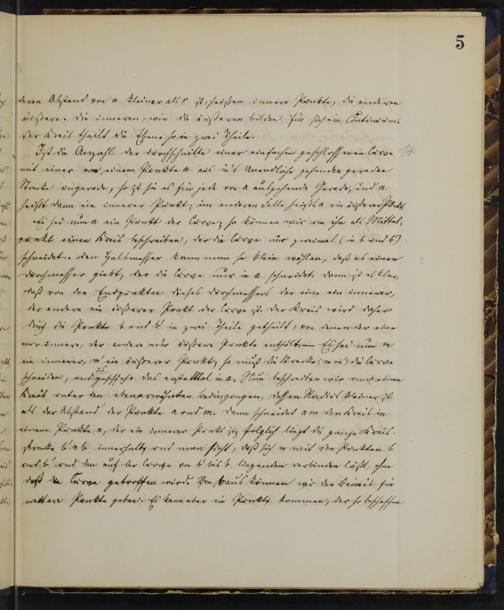 5
deren Abstand von a kleiner als r ist, heißen innere Punkte, die anderen
äußere. Die inneren, wie die äußeren bilden für sich ein Continuum.
Der Kreis theilt die Ebene so in zwei Theile.
Ist die Anzahl der Durchschnitte einer einfachen geschlossenen Curve
14
mit einer von einem Punkte a aus in's Unendliche gehenden geraden
Strecke ungerade, so ist sie es für jede von a ausgehende Gerade, und a
heißt dann ein innerer Punkt; im anderen Falle heißt a ein äußerer Punkt.
Es sei nun a ein Punkt der Curve; so können wir um ihn als Mittel-
punkt einen Kreis beschreiben, der die Curve nur zweimal (in b und b')
schneidet. Den Halbmesser kann man so klein wählen, daß es einen
Durchmesser giebt, der die Curve nur in a schneidet. Dann ist es klar,
daß von den Endpunkten dieses Durchmessers der eine ein innerer,
der andere ein äußerer Punkt der Curve ist. Der Kreis wird daher
durch die Punkte b und b' in zwei Theile getheilt, von denen der eine
nur innere, der andere nur äußere Punkte enthält. Es sei nun m
ein innerer, m' ein äußerer Punkt, so muß die Strecke (m m') die Curve
schneiden, und geschehe das erstemal in a. Nun beschreiben wir um a einen
Kreis unter den obenerwähnten Bedingungen, dessen Radius kleiner ist
als der Abstand der Punkte a und m. Dann schneidet a m den Kreis in
einem Punkte n, der ein innerer Punkt ist; folglich liegt die ganze Kreis-
strecke b n b' innerhalb, und man sieht, daß sich m mit den Punkten b
und b' und den auf der Curve von b bis b' liegenden verbinden läßt, ohne
daß die Curve getroffen wird. Von b aus können wir den Beweis für
weitere Punkte geben. Es kann aber ein Punkt kommen, der so beschaffen